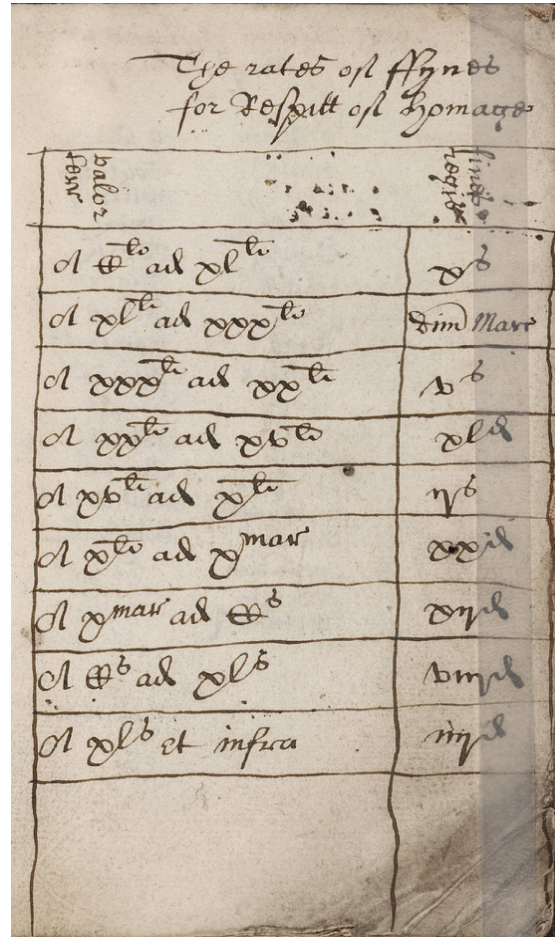 The rates of ffynes
for Respitt of homage
valor
terr
fines
regis
A C^li ad xl^li x^s
A xl^li ad xxx^li dim Marc
A xxx^li ad xx^li v^s
A xx^li ad xv^li xl^d
A xv^li ad x^li ij^s
A x^li ad x^mar xx^d
A x^mar ad C^s xij^d
A C^s ad xl^s viij^d
A xl^s et infra iiij^d